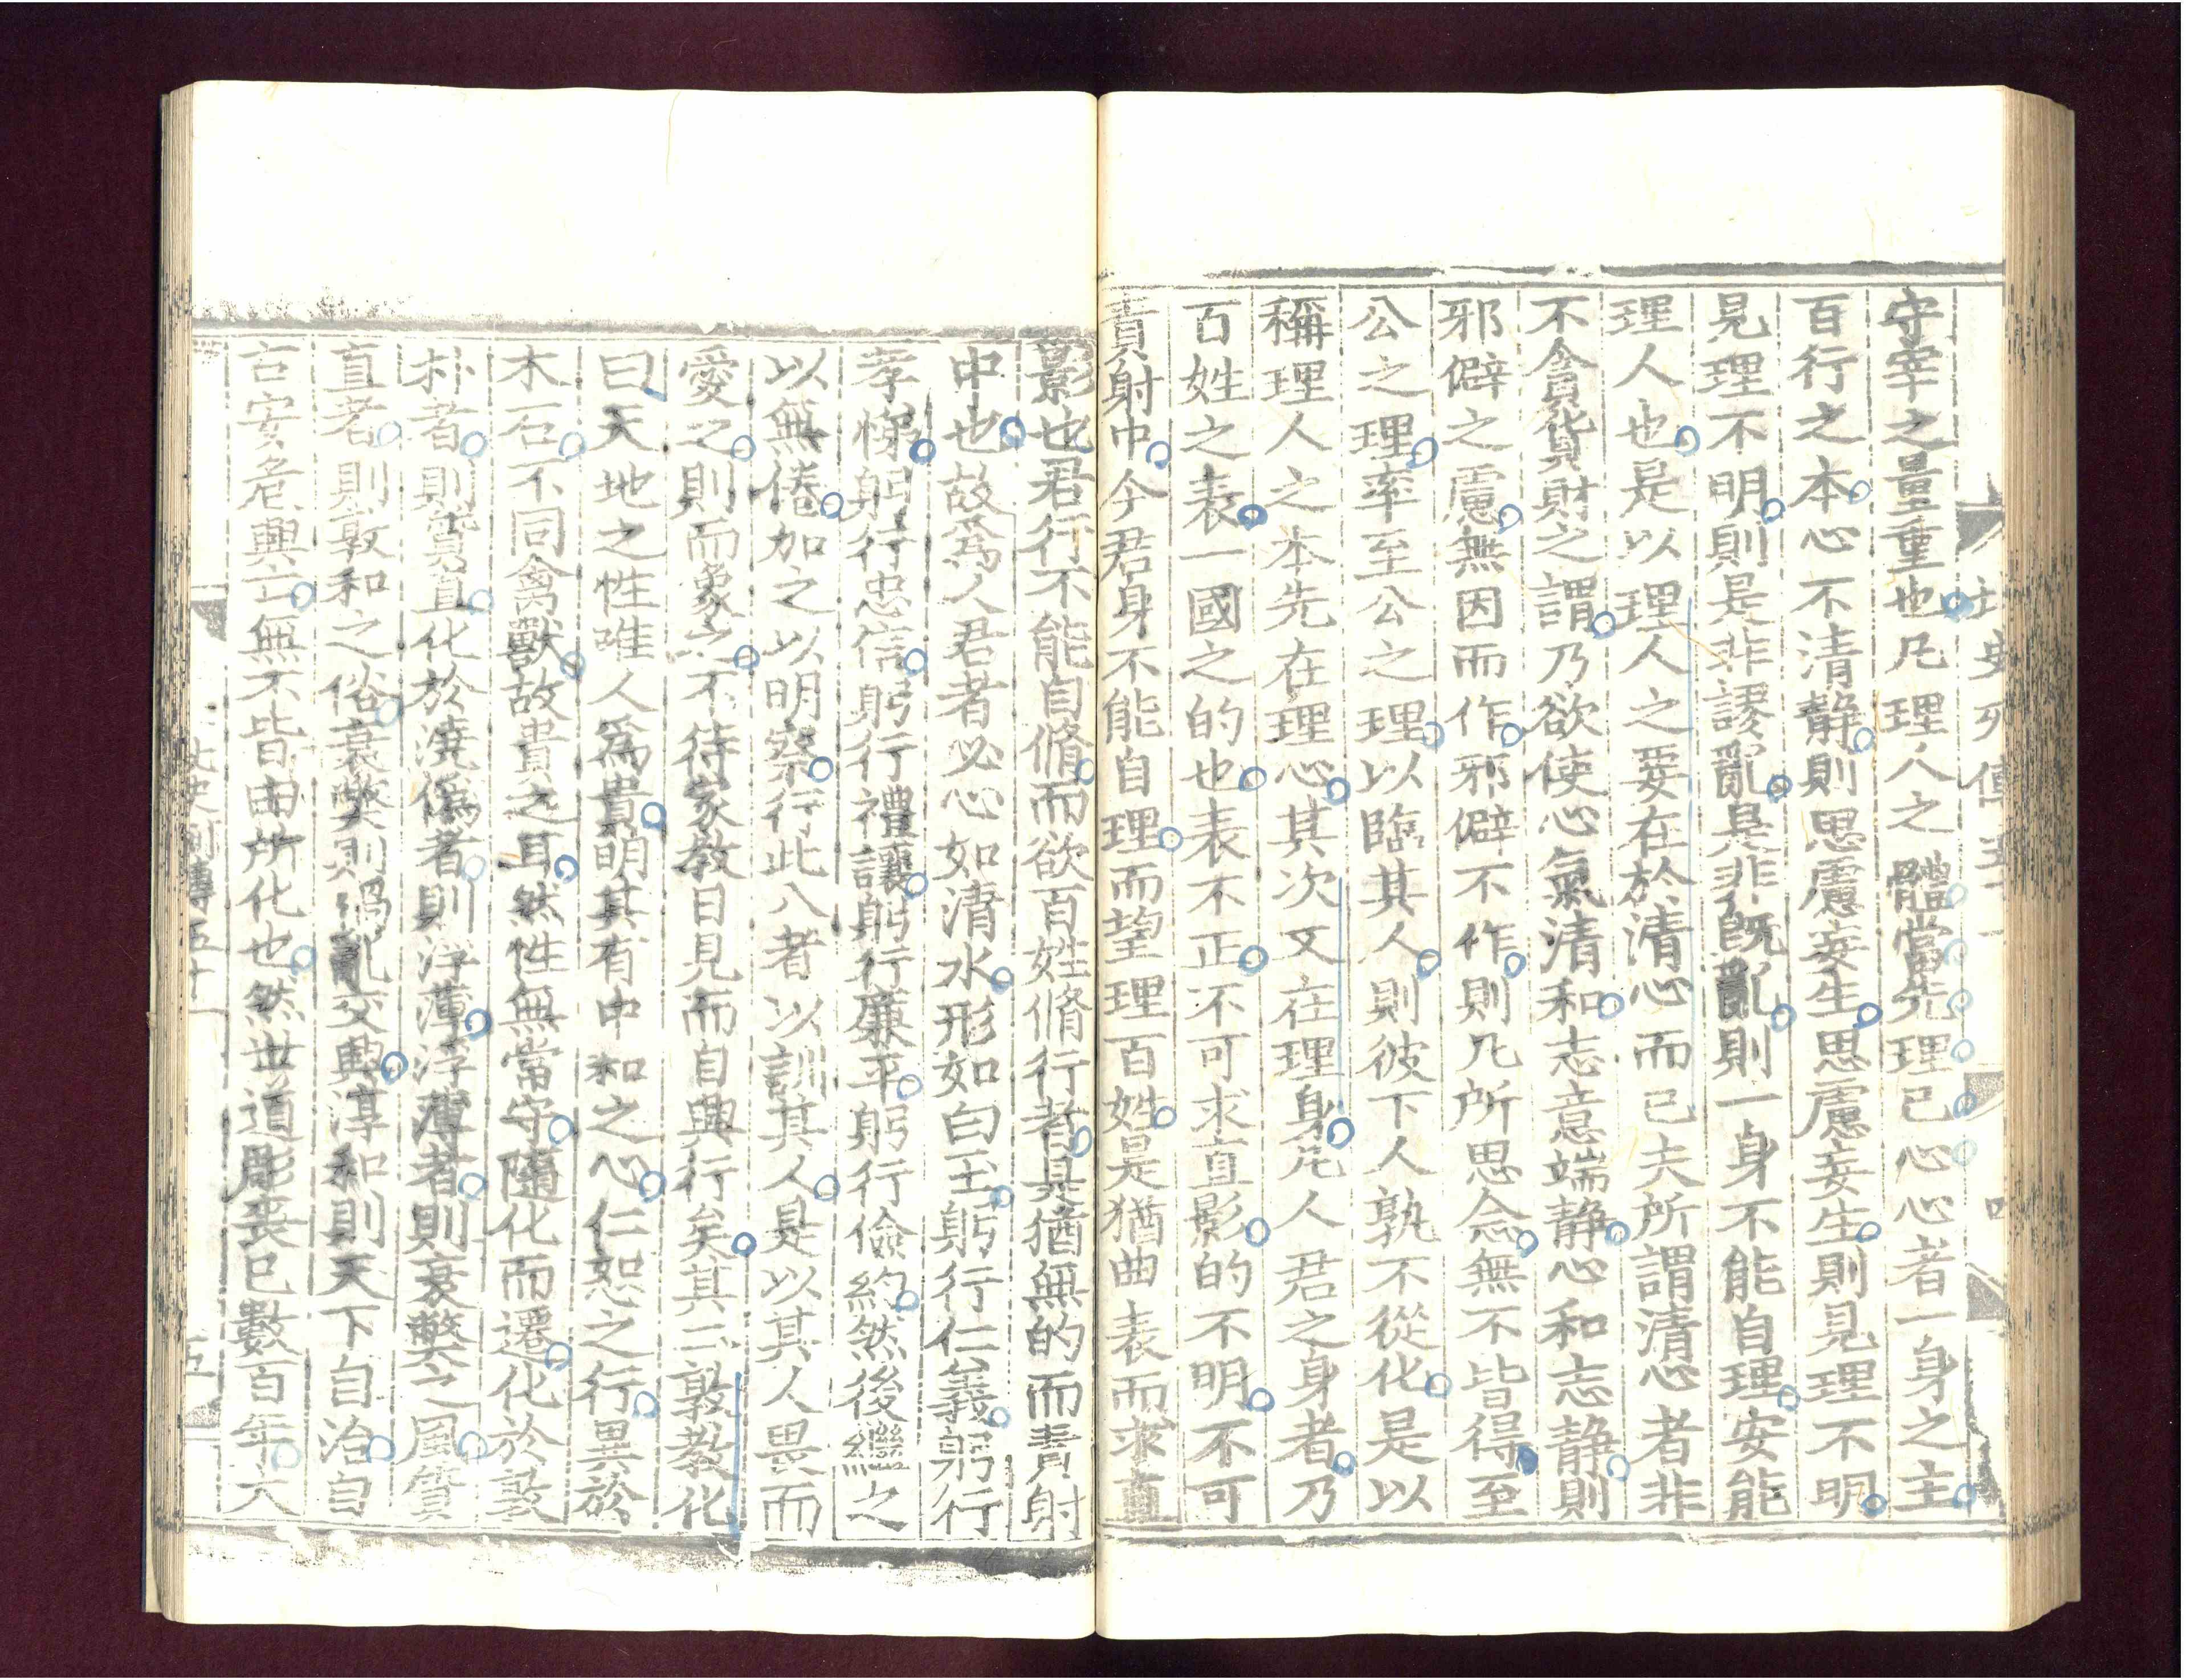 北史列傳五十一
四
守宰之最重也凡理人之體當先理己心心者一身之主
百行之本心不清静則思慮妄生思慮妄生則見理不明
見理不明則是非謬亂是非既亂則一身不能自理安能
理人也是以理人之要在於清心而已夫所謂清心者非
不貪貨財之謂乃欲使心氣清和志意端静心和志静則
邪僻之慮無因而作邪僻不作則凡所思念無不皆得至
公之理率至公之理以臨其人則彼下人孰不從化是以
稱理人之本先在理心其次又在理身凡人君之身者乃
百姓之表一國之的也表不正不可求直影的不明不可
責射中今君身不能自理而望理百姓是猶曲表而求直
影也君行不能自脩而欲百姓脩行者是猶無的而責射
中也故爲人君者必心如清水形如白玉躬行仁義躬行
孝悌躬行忠信躬行禮讓躬行廉平躬行儉約然後繼之
以無倦加之以明察行此八者以訓其人是以其人畏而
愛之則而象之不待家教日見而自興行矣其二敦教化
曰天地之性唯人爲貴明其有中和之心仁恕之行異於
木石不同禽獸故貴之耳然性無常守隨化而遷化於敦
朴者則質直化於澆僞者則浮薄浮薄者則衰弊之風質
直者則敦和之俗衰弊則禍亂交興淳和則天下自治自
古安危興亡無不皆由所化也然世道彫喪已數百年大
北史列傳五十一
五